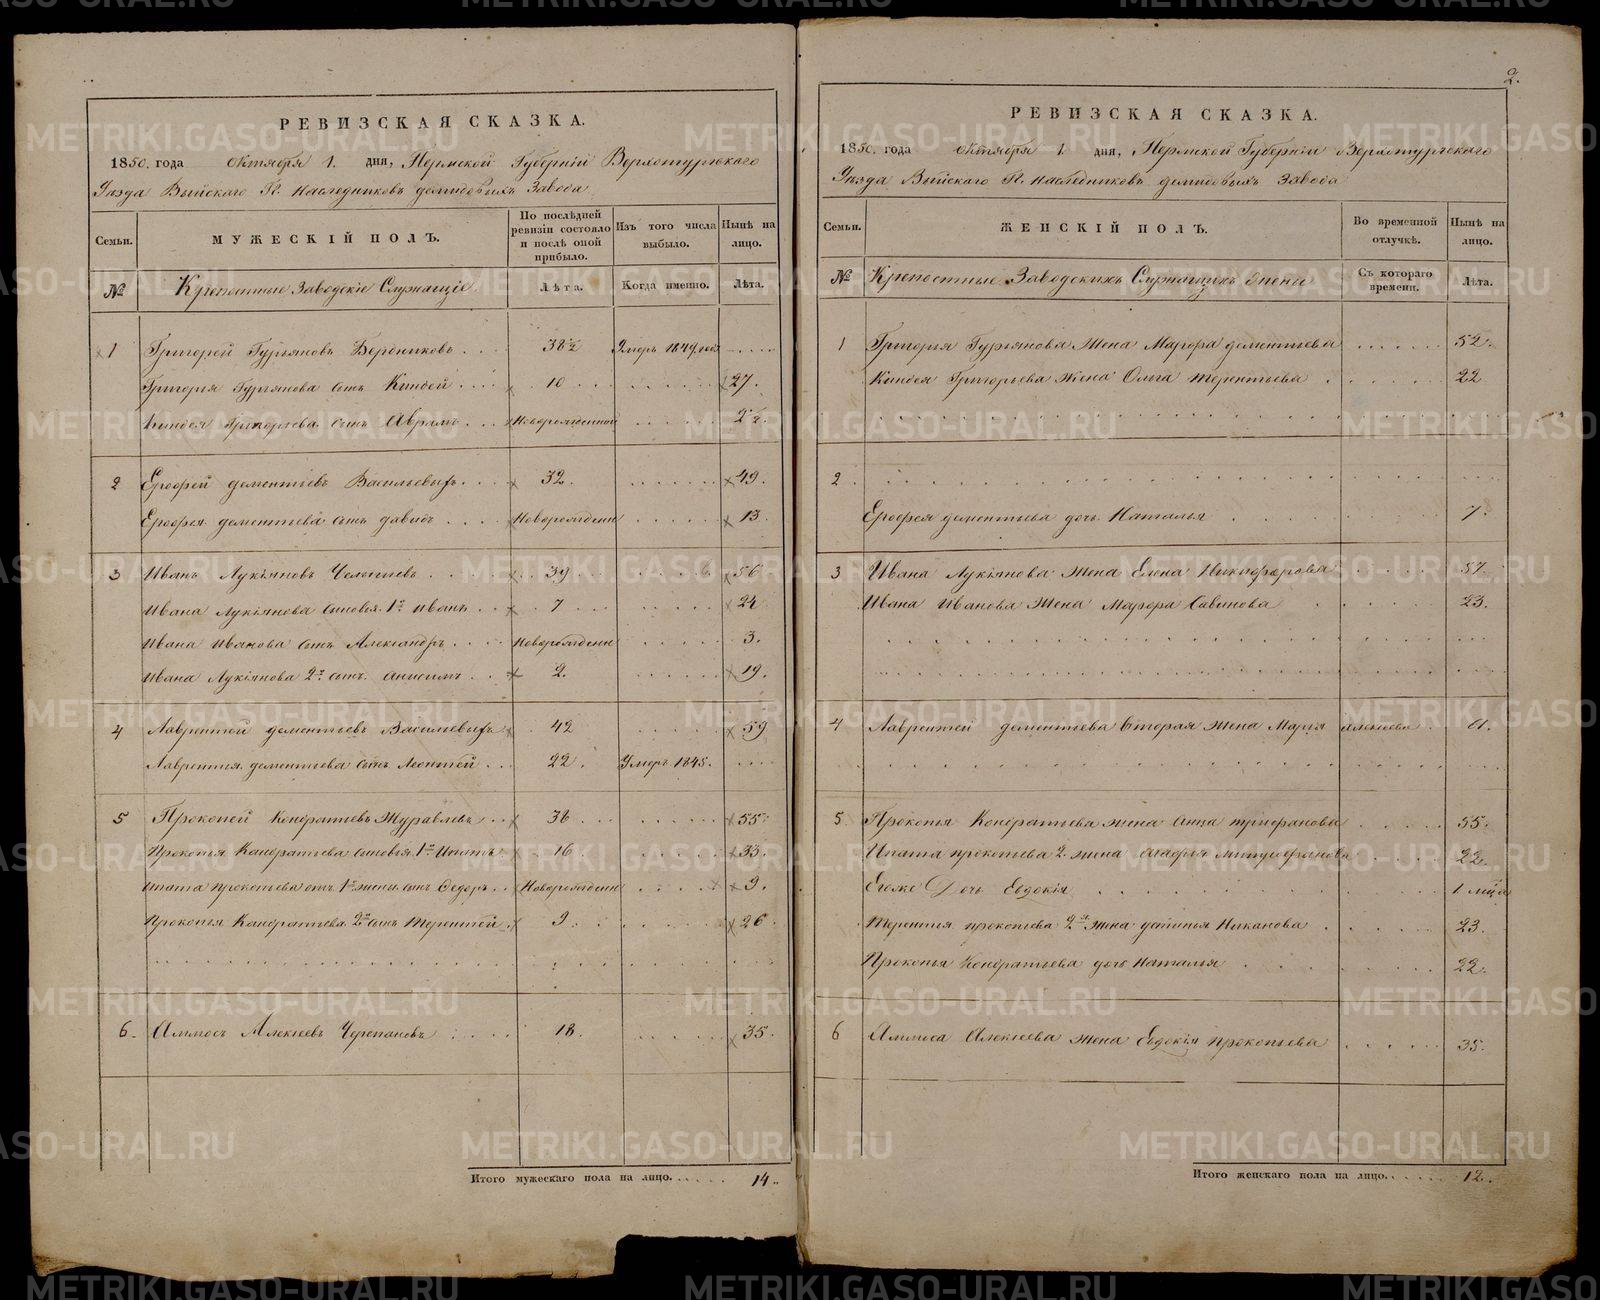 РЕВИЗСКАЯ СКАЗКА.
1850. года октября 1. дня, Пермской Губернiи Верхотурскаго
Уѣзда Выйскаго Гг. наслѣдниковъ демидовыхъ Завода
Семьи.
МУЖЕСКIЙ ПОЛЪ.
По послѣдней ревизiи состояло и послѣ оной прибыло.
Изъ того числа выбыло.
Нынѣ на лицо.
№ Крепостные Заводскiе Служащiе
Лѣта. Когда именно. Лѣта.
1 Григорей Гурьяновъ Бердниковъ 38½ Умеръ 1849. года
Григорья Гурьянова сынъ Киндей 10 27.
Киндея Григорьева сынъ Аврамъ Новорожденной 2½.
2 Ерофей дементьевъ Васильевыхъ 32. 49.
Ерофея дементьева сынъ давыдъ Новорожденн 13.
3 Иванъ Лукiяновъ 39 56
Ивана Лукiянова сыновья 1й иванъ 7 24
Ивана Иванова сынъ Александръ Новорожденн 3.
Ивана Лукiянова 2й сынъ анисимъ 2. 19.
4 Лаврентей дементьевъ Васильевыхъ 42 59
Лаврентья дементьева сынъ Леонтей 22. Умеръ 1845.
5 Прокопей Кондратьевъ Журавлевъ 38 55.
Прокопья Кондратьева сыновья 1й Ипатъ 16 33.
ипата прокопьева отъ 1й жены сынъ Федоръ Новорожденн 9.
Прокопья Кондратьева 2й сынъ терентей 9. 26
6. Аммосъ Алексеевъ Черепановъ 18. 35.
Итого мужескаго пола на лицо. 14.
2.
РЕВИЗСКАЯ СКАЗКА.
1850. года октября 1. дня, Пермской Губернiи Верхотурскаго
Уѣзда Выйскаго Гг. наслѣдниковъ демидовыхъ Завода
Семьи.
ЖЕНСКIЙ ПОЛЪ.
Во временной отлучкѣ.
Нынѣ на лицо.
№ Крепостные Заводскихъ Служащихъ жены
Съ котораго времени. Лѣта.
1 Григорья Гурьянова Жена Марфа дементьева 52.
Киндея Григорьева жена Ольга терентьева 22
2.
Ерофея дементьева дочь Наталья 7.
3 Ивана Лукiянова жена Елена Никифорова 57.
Ивана Иванова жена Марфа Савинова 23.
4 Лаврентей дементьева вторая жена Марья алексеева
5 Прокопья Кондратьева жена анна трифанова 55.
Ипата прокопьева 2. жена 22.
Егоже Дочь Евдокiя 1 мѣся
терентья прокопьева 2я жена устинья Никанова 23.
Прокопья Кондратьева дочь Наталья 22.
6 Аммоса Алексеева жена Евдокiя прокопьева 35.
Итого женскаго пола на лицо. 12.
METRIKI.GASO-URAL.RU